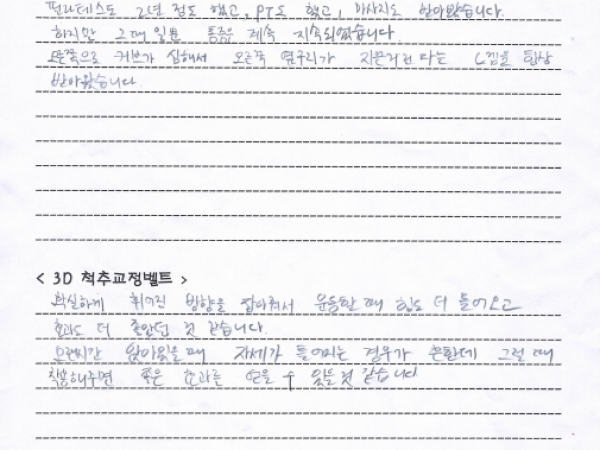 필라테스도 2년 정도 했고, PT도 했고, 마사지도 받아봤습니다.
하지만 그때일뿐 통증은 계속 지속되었습니다.
오른쪽으로 커브가 심해서 오른쪽 옆구리가 지끈거린다는 느낌을 항상
받아왔습니다.
< 3D 척추교정벨트 >
확실하게 휘어진 방향을 잡아줘서 운동할 때 힘도 더 들어오고
효과도 더 좋았던 것 같습니다.
오랜시간 앉아있을때 자세가 틀어지는 경우가 흔한데 그럴 때
착용해주면 좋은 효과를 얻을 수 있을것 같습니다